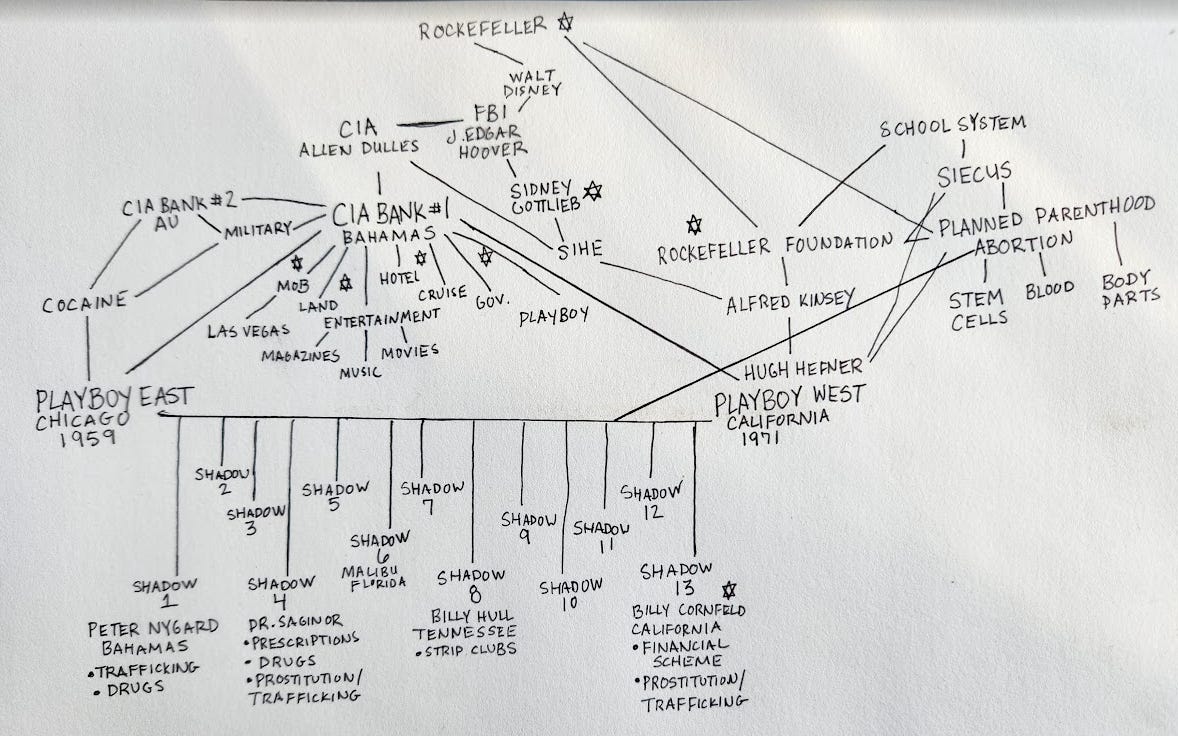 ROCKEFELLER
WALT
DISNEY
FBI
J. EDGAR
HOOVER
CIA
ALLEN DULLES
SIDNEY
GOTTLIEB
SIHE
SCHOOL SYSTEM
SIECUS
PLANNED PARENTHOOD
ABORTION
STEM
CELLS
BLOOD
BODY
PARTS
ROCKEFELLER FOUNDATION
ALFRED KINSEY
HUGH HEFNER
PLAYBOY WEST
CALIFORNIA
1971
CIA BANK #2
AU
MILITARY
CIA BANK #1
BAHAMAS
COCAINE
MOB
LAS VEGAS
LAND
ENTERTAINMENT
MAGAZINES
MUSIC
MOVIES
HOTEL
CRUISE
GOV.
PLAYBOY
PLAYBOY EAST
CHICAGO
1959
SHADOW
1
PETER NYGARD
BAHAMAS
•TRAFFICKING
• DRUGS
SHADOW
2
SHADOW
3
SHADOW
4
DR. SAGINOR
•PRESCRIPTIONS
• DRUGS
•PROSTITUTION/
TRAFFICKING
SHADOW
5
SHADOW
6
MALIBU
FLORIDA
SHADOW
7
SHADOW
8
BILLY HULL
TENNESSEE
•STRIP CLUBS
SHADOW
9
SHADOW
10
SHADOW
11
SHADOW
12
SHADOW
13
BILLY CORNFELD
CALIFORNIA
•FINANCIAL
SCHEME
•PROSTITUTION/
TRAFFICKING